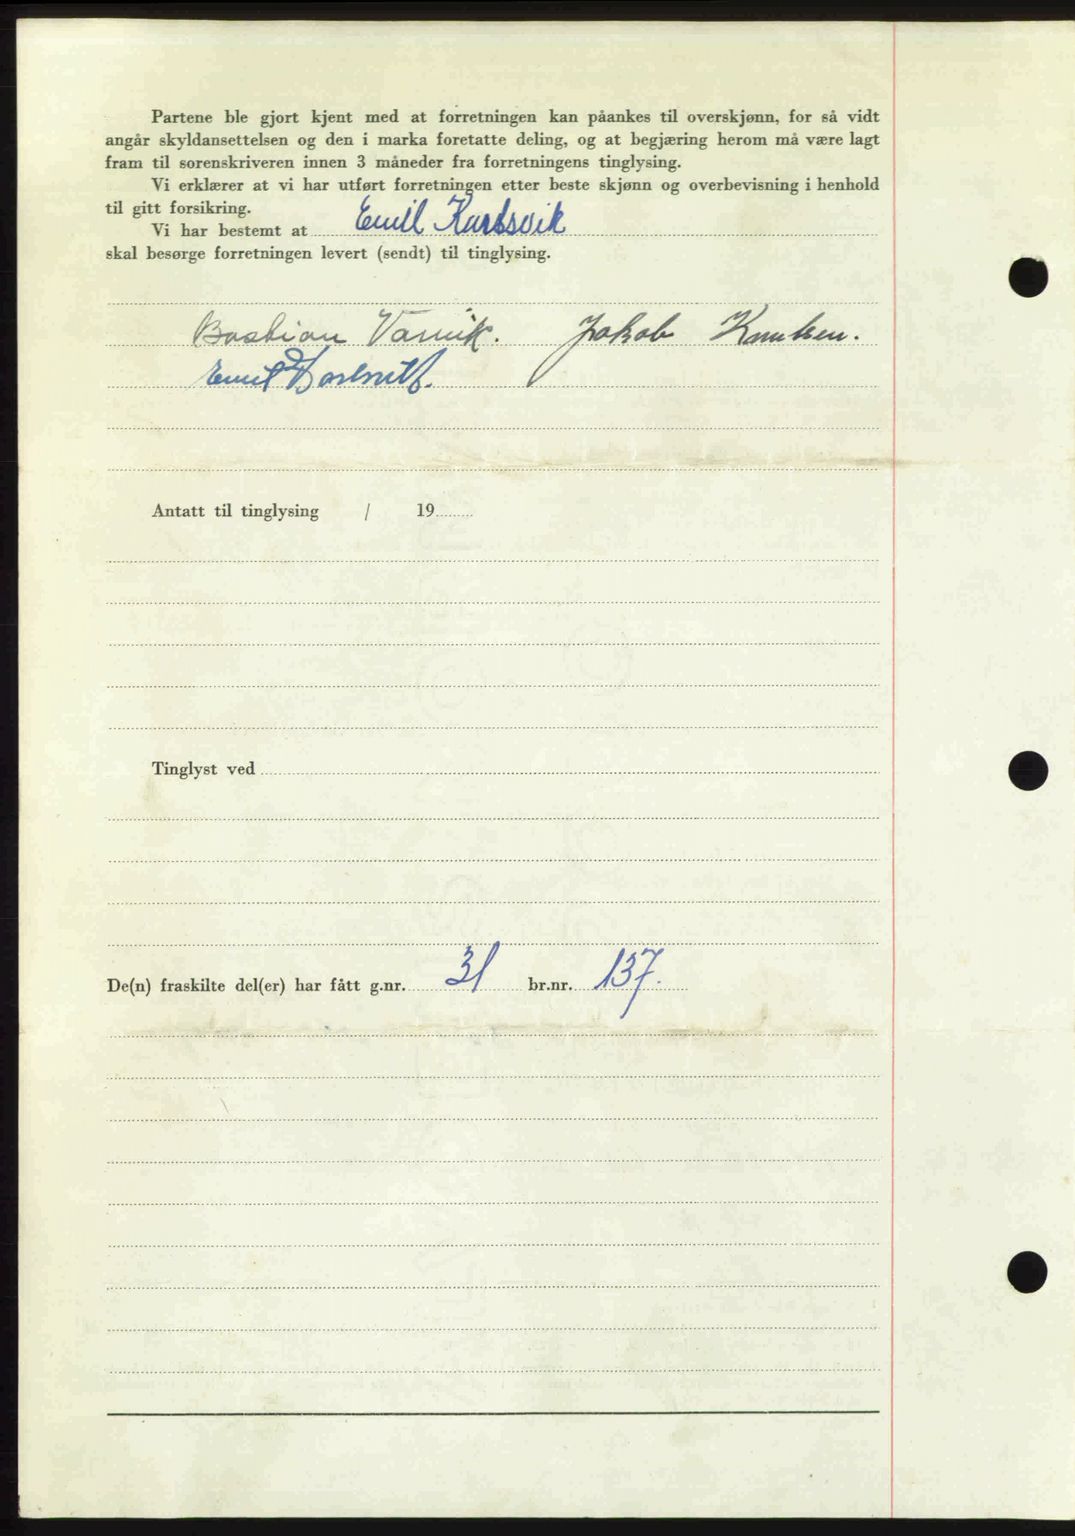 Partene ble gjort kjent med at forretningen kan påankes til overskjønn, for så vidt
angår skyldansettelsen og den i marka foretatte deling, og at begjæring herom må være lagt
fram til sorenskriveren innen 3 måneder fra forretningens tinglysing.
Vi erklærer at vi har utført forretningen etter beste skjønn og overbevisning i henhold
til gitt forsikring.
Vi har bestemt at Emil Karlsvik
skal besørge forretningen levert (sendt) til tinglysing.
Bastian Jakob Knutsen.
Emil
Antatt til tinglysing / 19
Tinglyst ved
De(n) fraskilte del(er) har fått g.nr. 31 br.nr. 137.